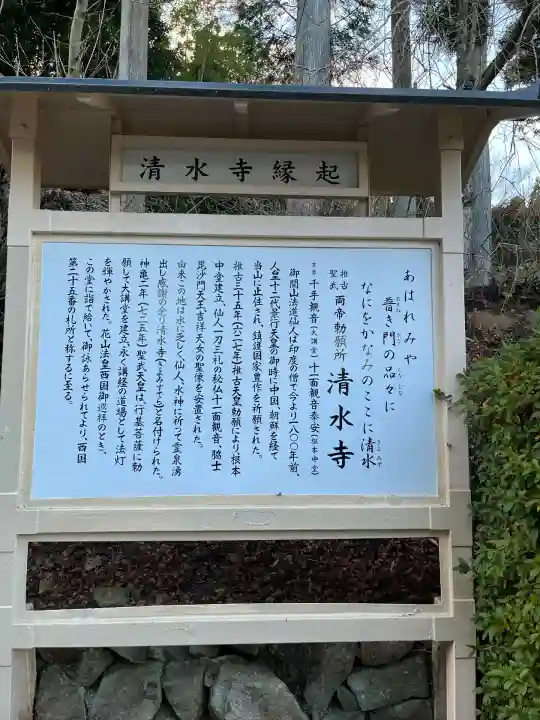 清水寺縁起
あはれみや
普き門の品々に
なにをかなみのここに清水
推古
聖武
両帝勅願所
清水寺
本尊 千手観音(大講堂)十一面観音泰安(根本中堂)
御開山法道仙人は印度の僧で、今より一八〇〇年前、
人皇十二代景行天皇の御時に中国、朝鮮を経て
当山に止住され、鎮護国家豊作を祈願された。
推古三十五年(六二七年)推古天皇勅願により根本
中堂建立、仙人一刀三礼の秘仏十一面観音、脇士
毘沙門天王、吉祥天女の聖像を安置された。
由来この地は水に乏しく、仙人、水神に祈って霊泉湧
出し感謝の余り清水寺(きよみずでら)と名付けられた。
神亀二年(七二五年)聖武天皇は、行基菩薩に勅
願して大講堂を建立、永く講経の道場として法灯
を輝やかされた。花山法皇西国御巡拝のとき、
この堂に詣で給いて、御詠あらせられてより、西国
第二十五番の札所と称するに至る。